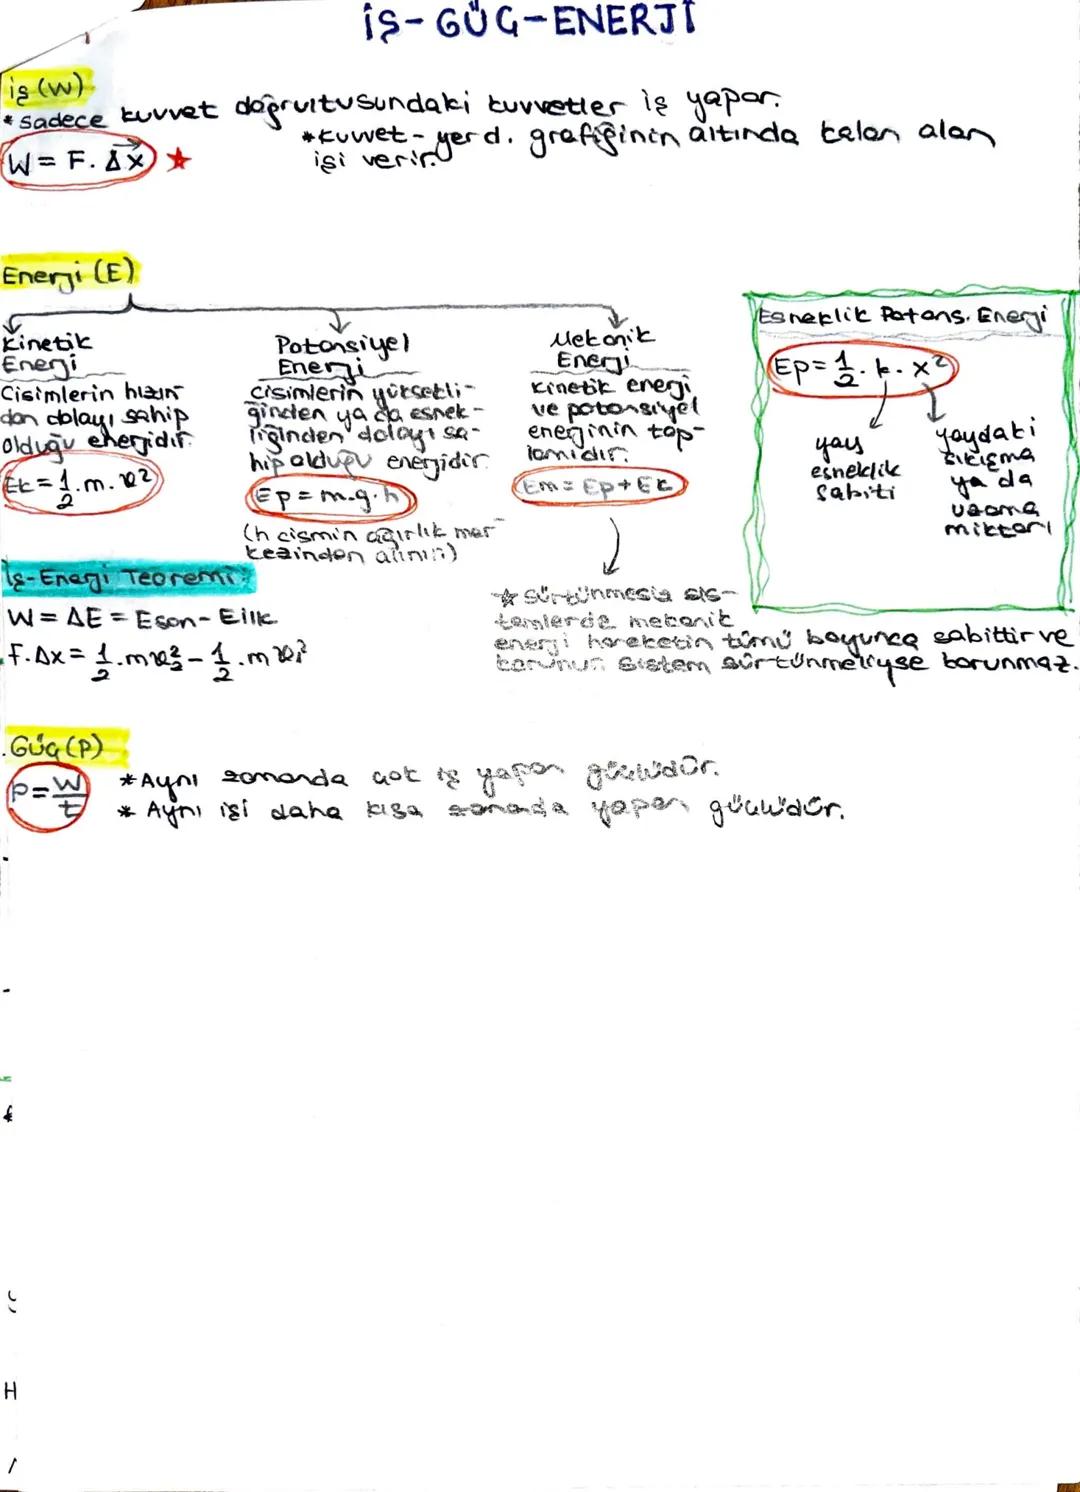 İŞ-GÜÇ-ENERJİ
iş (W)
*sadece kuvvet doğrultusundaki kuvvetler iş yapar.
*Kuvvet-yer d. grafiğinin altında kalan alan
işi verir.
W = F. Δx
Enerji (E)
Kinetik
Enerji
Cisimlerin hızın-
dan dolayı sahip
olduğu enerjidir.
Ek = 1/2 . m. v²
Potansiyel
Enerji
cisimlerin yüksekli-
ğinden ya da esnek-
liğinden dolayı sa-
hip olduğu enerjidir.
Ep = m.g.h
(h cismin ağırlık mer-
kezinden alınır)
Mekanik
Enerji
Kinetik enerji
ve potansiyel
enerjinin top-
lamıdır.
Em = Ep + Ek
* sürtünmesiz sis-
temlerde mekanik
enerji hareketin tümü boyunca sabittir ve
korunur. Sistem sürtünmeliyse korunmaz.
Esneklik Potans. Enerji
Ep = 1/2 . k . x²
yay
esneklik
sabiti
yaydaki
sıkışma
ya da
uzama
miktarı
İş-Enerji Teoremi:
W = ΔE = Eson - Eilk
F. Δx = 1/2 . mv₂² - 1/2 . mv₁²
Güç (P)
P = W/t
*Aynı zamanda çok iş yapan güçlüdür.
* Aynı işi daha kısa zamanda yapan güçlüdür.
H